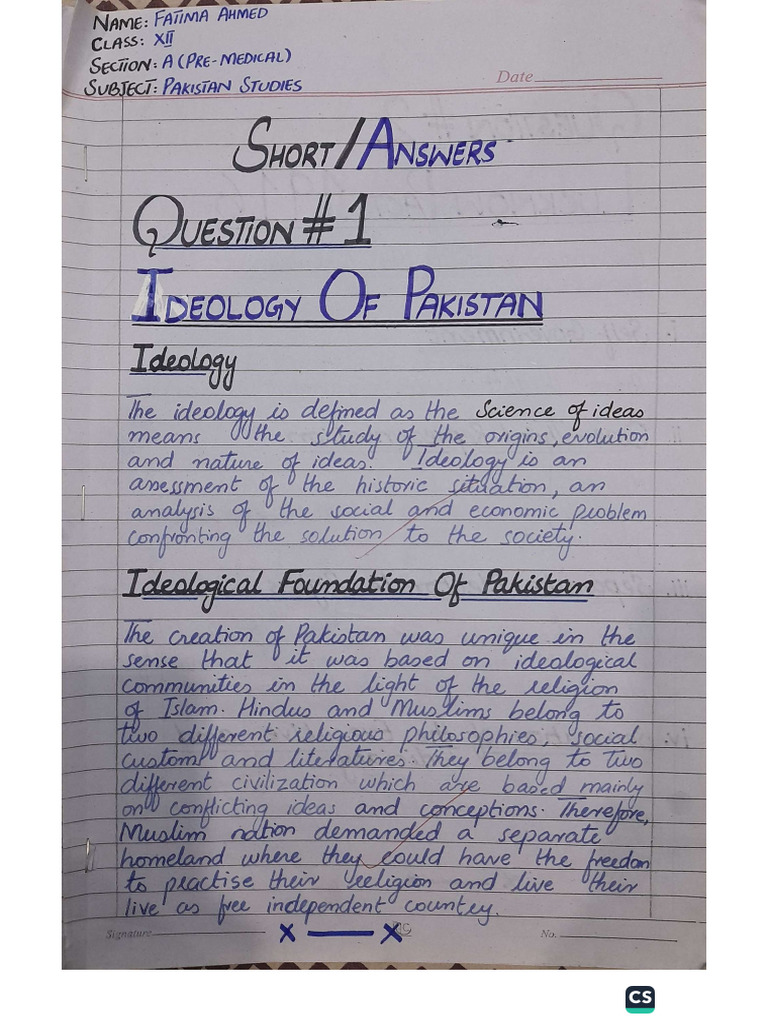 NAME: FATIMA AHMED
CLASS: XII
SECTION: A (PRE-MEDICAL)
SUBJECT: PAKISTAN STUDIES
Date
SHORT/ANSWERS
QUESTION # 1
IDEOLOGY OF PAKISTAN
Ideology
The ideology is defined as the Science of ideas
means the study of the origins, evolution
and nature of ideas. Ideology is an
assessment of the historic situation, an
analysis of the social and economic problem
confronting the solution to the society.
Ideological Foundation Of Pakistan
The creation of Pakistan was unique in the
sense that it was based on ideological
communities in the light of the religion
of Islam. Hindus and Muslims belong to
two different religious philosophies, social
custom and literatures. They belong to two
different civilization which are based mainly
on conflicting ideas and conceptions. Therefore,
Muslim nation demanded a separate
homeland where they could have the freedom
to practise their religion and live their
live as free independent country.
Signature
x — x
No.
CS